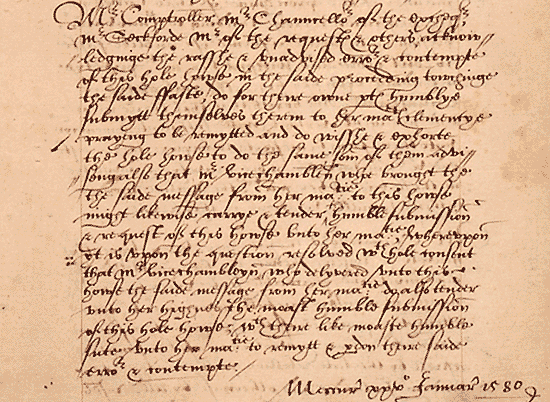 Mr Comptroller, mr Chauncellor of the exchequer
mr Seckforde mr of the requests & others acknow//
ledginge the rasshe & unadvised error & contempte
of this hole howse in the saide proceding towchinge
the saide ffaste, do for there owne pte humblye
submytt themselves therein to her mats Clemencye
prayeng to be remytted and do wisshe & exhorte
the hole howse to do the same som of them advi//
sing also that mr vicechamblen who brought the
the saide message from her matie to this howse
might likewise carrye & tender humble submission
& request of this howse unto her matie; whereuppon
yt is uppon the question resolved wth hole consent
that mr vicechambleyn who delyvered unto this
howse the saide message from her matie do also tender
unto her highnes the moast humble submission
of this hole howse wth there like moaste humble
sute unto her matie to remytt & pdon there saide
error & contempte
Mercur xxvo Januar 1580